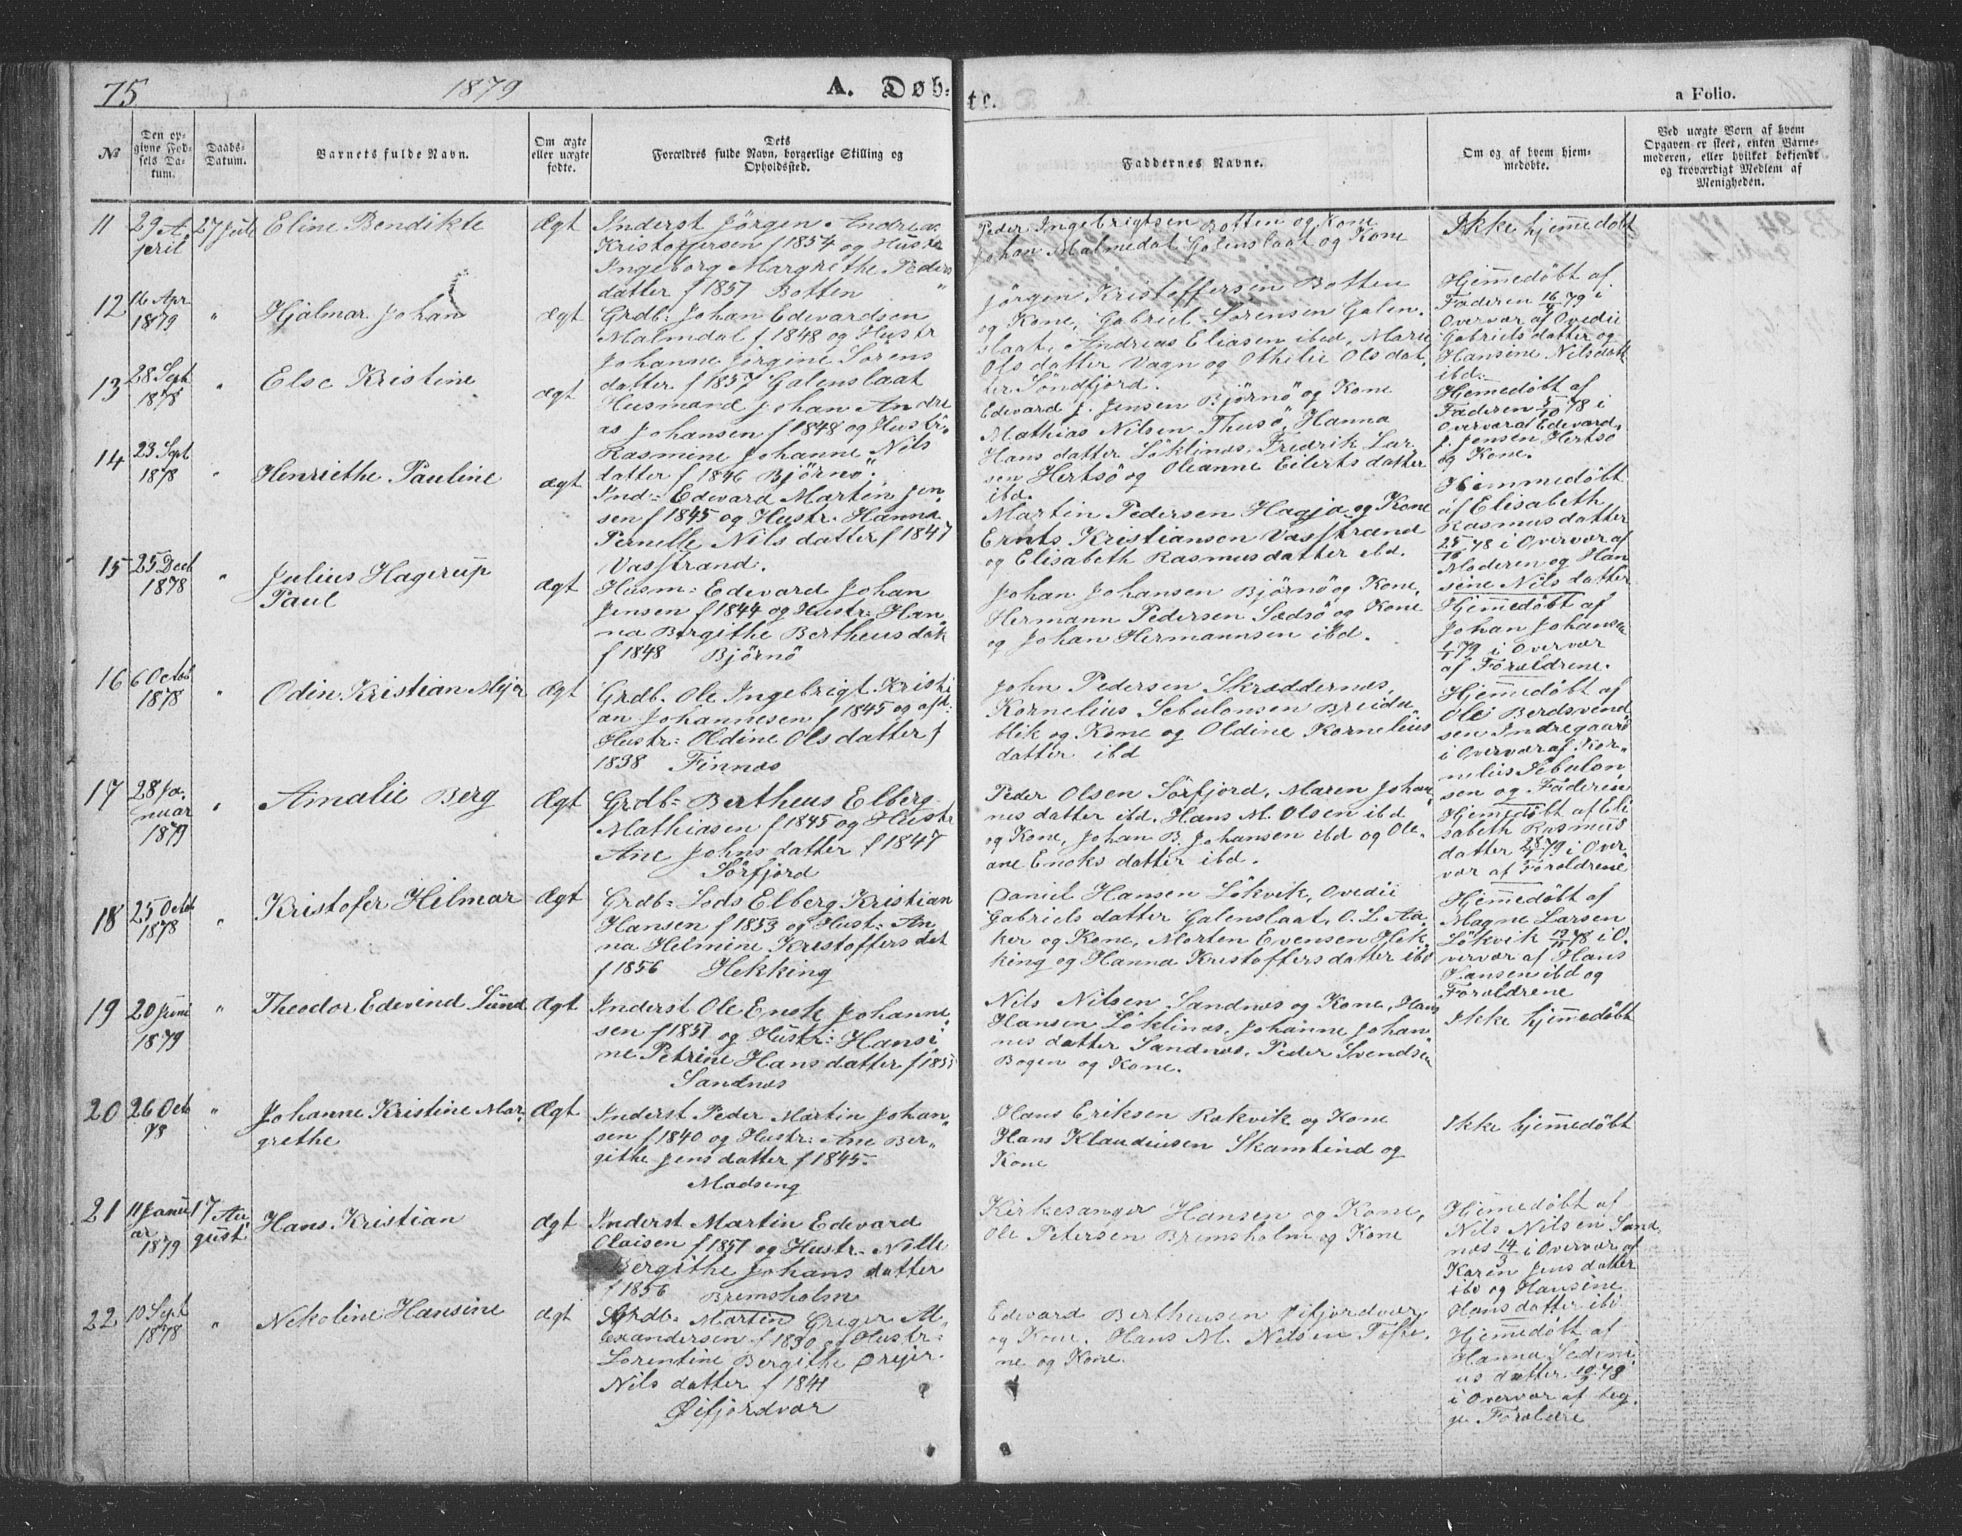 75
1879
A. Døb-
te.
a Folio.
№
Den op-
givne Fød-
sels Da-
tum.
Daabs-
Datum.
Barnets fulde Navn.
Om ægte
eller uægte
fødte.
Dets
Forældres fulde Navn, borgerlige Stilling og
Opholdssted.
Faddernes Navne.
Om og af hvem hjem-
medøbte.
Ved uægte Børn af hvem
Opgaven er skeet, enten Barne-
moderen, eller hvilket bekjendt
og troværdigt Medlem af
Menigheden.
11
29 A
pril
27 Juli
Eline Bendikte
Ægt
Inderst Jørgen Andreas
Kristoffersen f 1854 og Hustr
Ingeborg Margrethe Peders
datter f 1857 Botten
Peder Ingebrigtsen Botten og Kone
Johan Malmedal Galenslaat og Kone
Ikke hjemmedøbt
12
16 Apr
1879
"
Hjalmar Johan
ægt
Grdb: Johan Edevardsen
Malmdal f 1848 og Hustr
Johanne Jørgine Sørens
datter f 1857 Galenslaat
Jørgen Kristoffersen Botten
og Kone, Gabriel Sørensen Galen-
slaat, Andreas Eliasen ibid, Marie
Olsdatter Vagn og Othilie Olsdat
ter Søndfjord.
Hjemmedøbt af
Faderen 16/4 79 i
Overvær af Ovedii
Gabrielsdatter og
Hansine Nilsdatt
ibd.
13
28 Sept
1878
"
Else Kristine
ægt
Husmand Johan Andre
as Johansen f 1848 og Hustr:
Rasmine Johanne Nils
datter f 1846 Bjørnø.
Edevard J. Jensen Bjørnø og Kone
Mathias Nilsen Thusø, Hanna
Hans datter Løklinæs, Fredrik Lar-
sen Hertsø og Oleanne Eilerts datter
ibd.
Hjemmedøbt af
Faderen 5/10 78 i
Overværd Edevard
J. Jensen Hertsø
og Kone.
14
23 Sept
1878
"
Henriethe Pauline
ægt
Ind: Edevard Martin Jen
sen f 1845 og Hustr: Hanna
Pernelle Nils datter f 1847
Vasstrand.
Martin Pedersen Hagja og Kone
Ernts Kristiansen Vasstrand
og Elisabeth Rasmusdatter ibd.
Hjemmedøbt
af Elisabeth
Rasmusdatter
25/10 78 i Overvær af
Moderen og Han
sine Nils datter
15
25 Decb
1878
"
Julius Hagerup
Paul
ægt
Husm: Edevard Johan
Jensen f 1844 og Hustr: Han-
na Bergithe Bertheus dat
f 1848 Bjørnø
Johan Johansen Bjørnø og Kone,
Hermann Pedersen Sædsø og Kone
og Johan Hermannsen ibd.
Hjemmedøbt af
Johan Johansen
1/1 79 i Overvær
af Foræ­ldrene.
16
6 Octob
1878
"
Odin Kristian Mejer
ægt
Grdb. Ole Ingebrigt Kristi
an Johannesen f 1845 og afd:
Hustr: Oldine Olsdatter f
1838 Finnæs
John Pedersen Skreddernæs,
Kornelius Sebulonsen Breida-
blik og Kone og Oldine Kornelius
datter ibd
Hjemmedøbt af
Ole Berdsvend
sen Indregaard
i Overvær af Kor-
nelius Sebulon
sen og Faderen
17
28 Ja-
nuar
1879
"
Amalie Berg
Ægt
Grdb= Bertheus Elberg
Mathiasen f 1845 og Hustr
Ane Johns datter f 1847
Sørfjord
Peder Olsen Sørfjord, Maren Johan-
nes datter ibd. Hans M. Olsen ibd
og Kone, Johan B. Johansen ibd og Ole-
ane Enoks datter ibd.
Hjemmedøbt af Eli
sabeth Rasmus
datter 28/1 79 i Over-
vær af Forældrene
18
25 Octob
1878
"
Kristofer Hilmar
Ægt
Grdb= Lods Elberg Kristian
Hansen f 1853 og Hust: An-
na Helmine Kristoffers dat
f 1856 Hekking
Daniel Hansen Løkvik, Ovedii
Gabriels datter Galenslaat, O. L. Aa-
ker og Kone, Morten Evensen Hek-
king og Hanna Kristoffersdatter ibd
Hjemmedøbt af
Magne Larsen
Løkvik 19/11 78 i O-
vervær af Hans
Hansen ibd og
Forældrene
19
20 Juni
1879
"
Theodor Edevind Sund
Ægt
Inderst Ole Enok Johanne-
sen f 1851 og Hustr: Hansi
ne Petrine Hansdatter f 185
Sandnæs
Nils Nilsen Sandnæs og Kone, Hans
Hansen Løklinæs, Johanne Johan
nes datter Sandnæs, Peder Svendsen
Bogen og Kone.
Ikke hjemmedøbt
20
26 Oct
78
"
Johanne Kristine Mar-
grethe
Ægt
Inderst Peder Martin Johan-
sen f 1840 og Hustr: Ane Ber-
githe Jens datter f 1845.
Madseng
Hans Eriksen Rakvik og Kone
Hans Klaudiusen Skamtind og
Kone
Ikke hjemmedøbt
21
11 Janu
ar
1879
17 Au
gust
Hans Kristian
Ægt
Inderst Martin Edevard
Olaisen f 1851 og Hustr. Nille
Bergithe Johans datter
f 1856 Bremsholm
Kirkesanger Hansen og Kone,
Ole Petersen Bremsholm og Kone
Hjemmedøbt af
Nils Nilsen Sand
næs 14/3 i Overvær af
Karen Jens datter
ibd og Hansine
Hans datter ibd
22
10 Sept
1878
"
Nekoline Hansine
ægt
Grdb. Martin Greger Al-
exandersen f 1830 og Hustr:
Lorentine Bergithe Drejer
Nils datter f 1841
Øifjordvær
Edevard Bertheusen Øifjordvær
og Kone. Hans M. Nilsen Tofte-
ne og Kone.
Hjemmedøbt af
Hanna Sedeni
us datter 10/9 78
i Overvær af beg-
ge Forældre